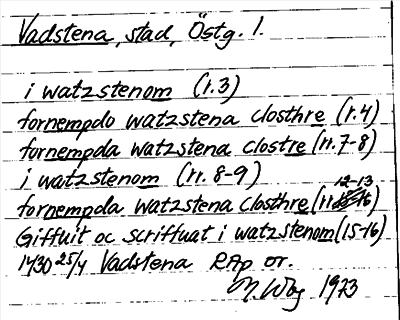 Vadstena, stad, Östg. l.
i watzstenom (r.3)
fornempdo watzstena closthre (r.4)
fornempda watzstena clostre (rr.7-8)
i watzstenom (rr. 8-9)
fornempda watzstena closthre (rr 12-13)
Giffuit oc scriffuat i watzstenom (15-16)
1430 25/4 Vadstena RAp or.
1973